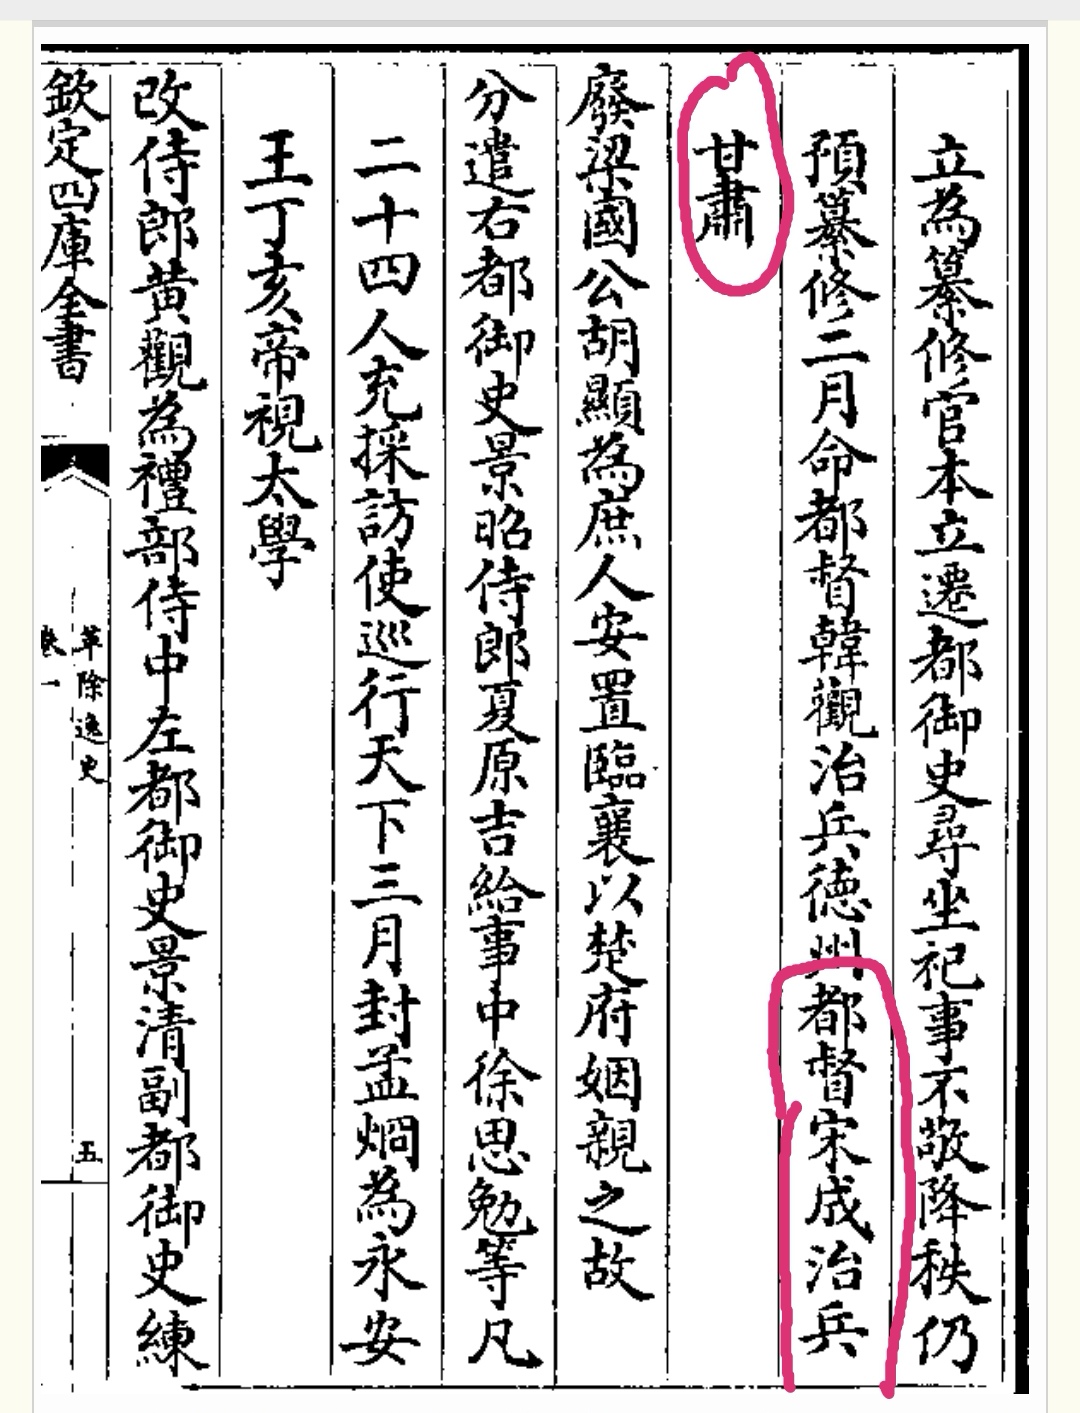 立為纂修官本立遷都御史尋坐祀事不敬降秩仍
預纂修二月命都督韓觀治兵徳州都督宋成治兵
甘肅
廢梁國公胡顯為庶人安置臨襄以楚府姻親之故
分遣右都御史景昭侍郎夏原吉給事中徐思勉等凡
二十四人充採訪使巡行天下三月封孟烱為永安
王丁亥帝視太學
改侍郎黄觀為禮部侍中左都御史景清副都御史練
欽定四庫全書
革除逸史
卷一
五